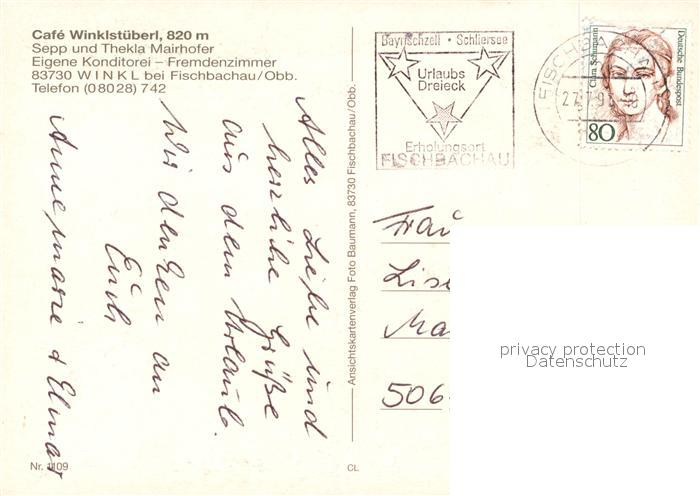 Café Winklstüberl, 820 m
Sepp und Thekla Mairhofer
Eigene Konditorei – Fremdenzimmer
83730 WINKL bei Fischbachau/Obb.
Telefon (0 80 28) 7 42
Alles Liebe und
herzliche Grüße
aus dem Urlaub.
Wir denken an
Euch
Annemarie + Elmar
Nr. 1109
CL
Ansichtskartenverlag Foto Baumann, 83730 Fischbachau/Obb.
Bayrischzell · Schliersee
Urlaubs
Dreieck
Erholungsort
FISCHBACHAU
FISCHBACHAU
Clara Schumann
Deutsche Bundespost
80
Frau
Lise
Ma
506
privacy protection
Datenschutz